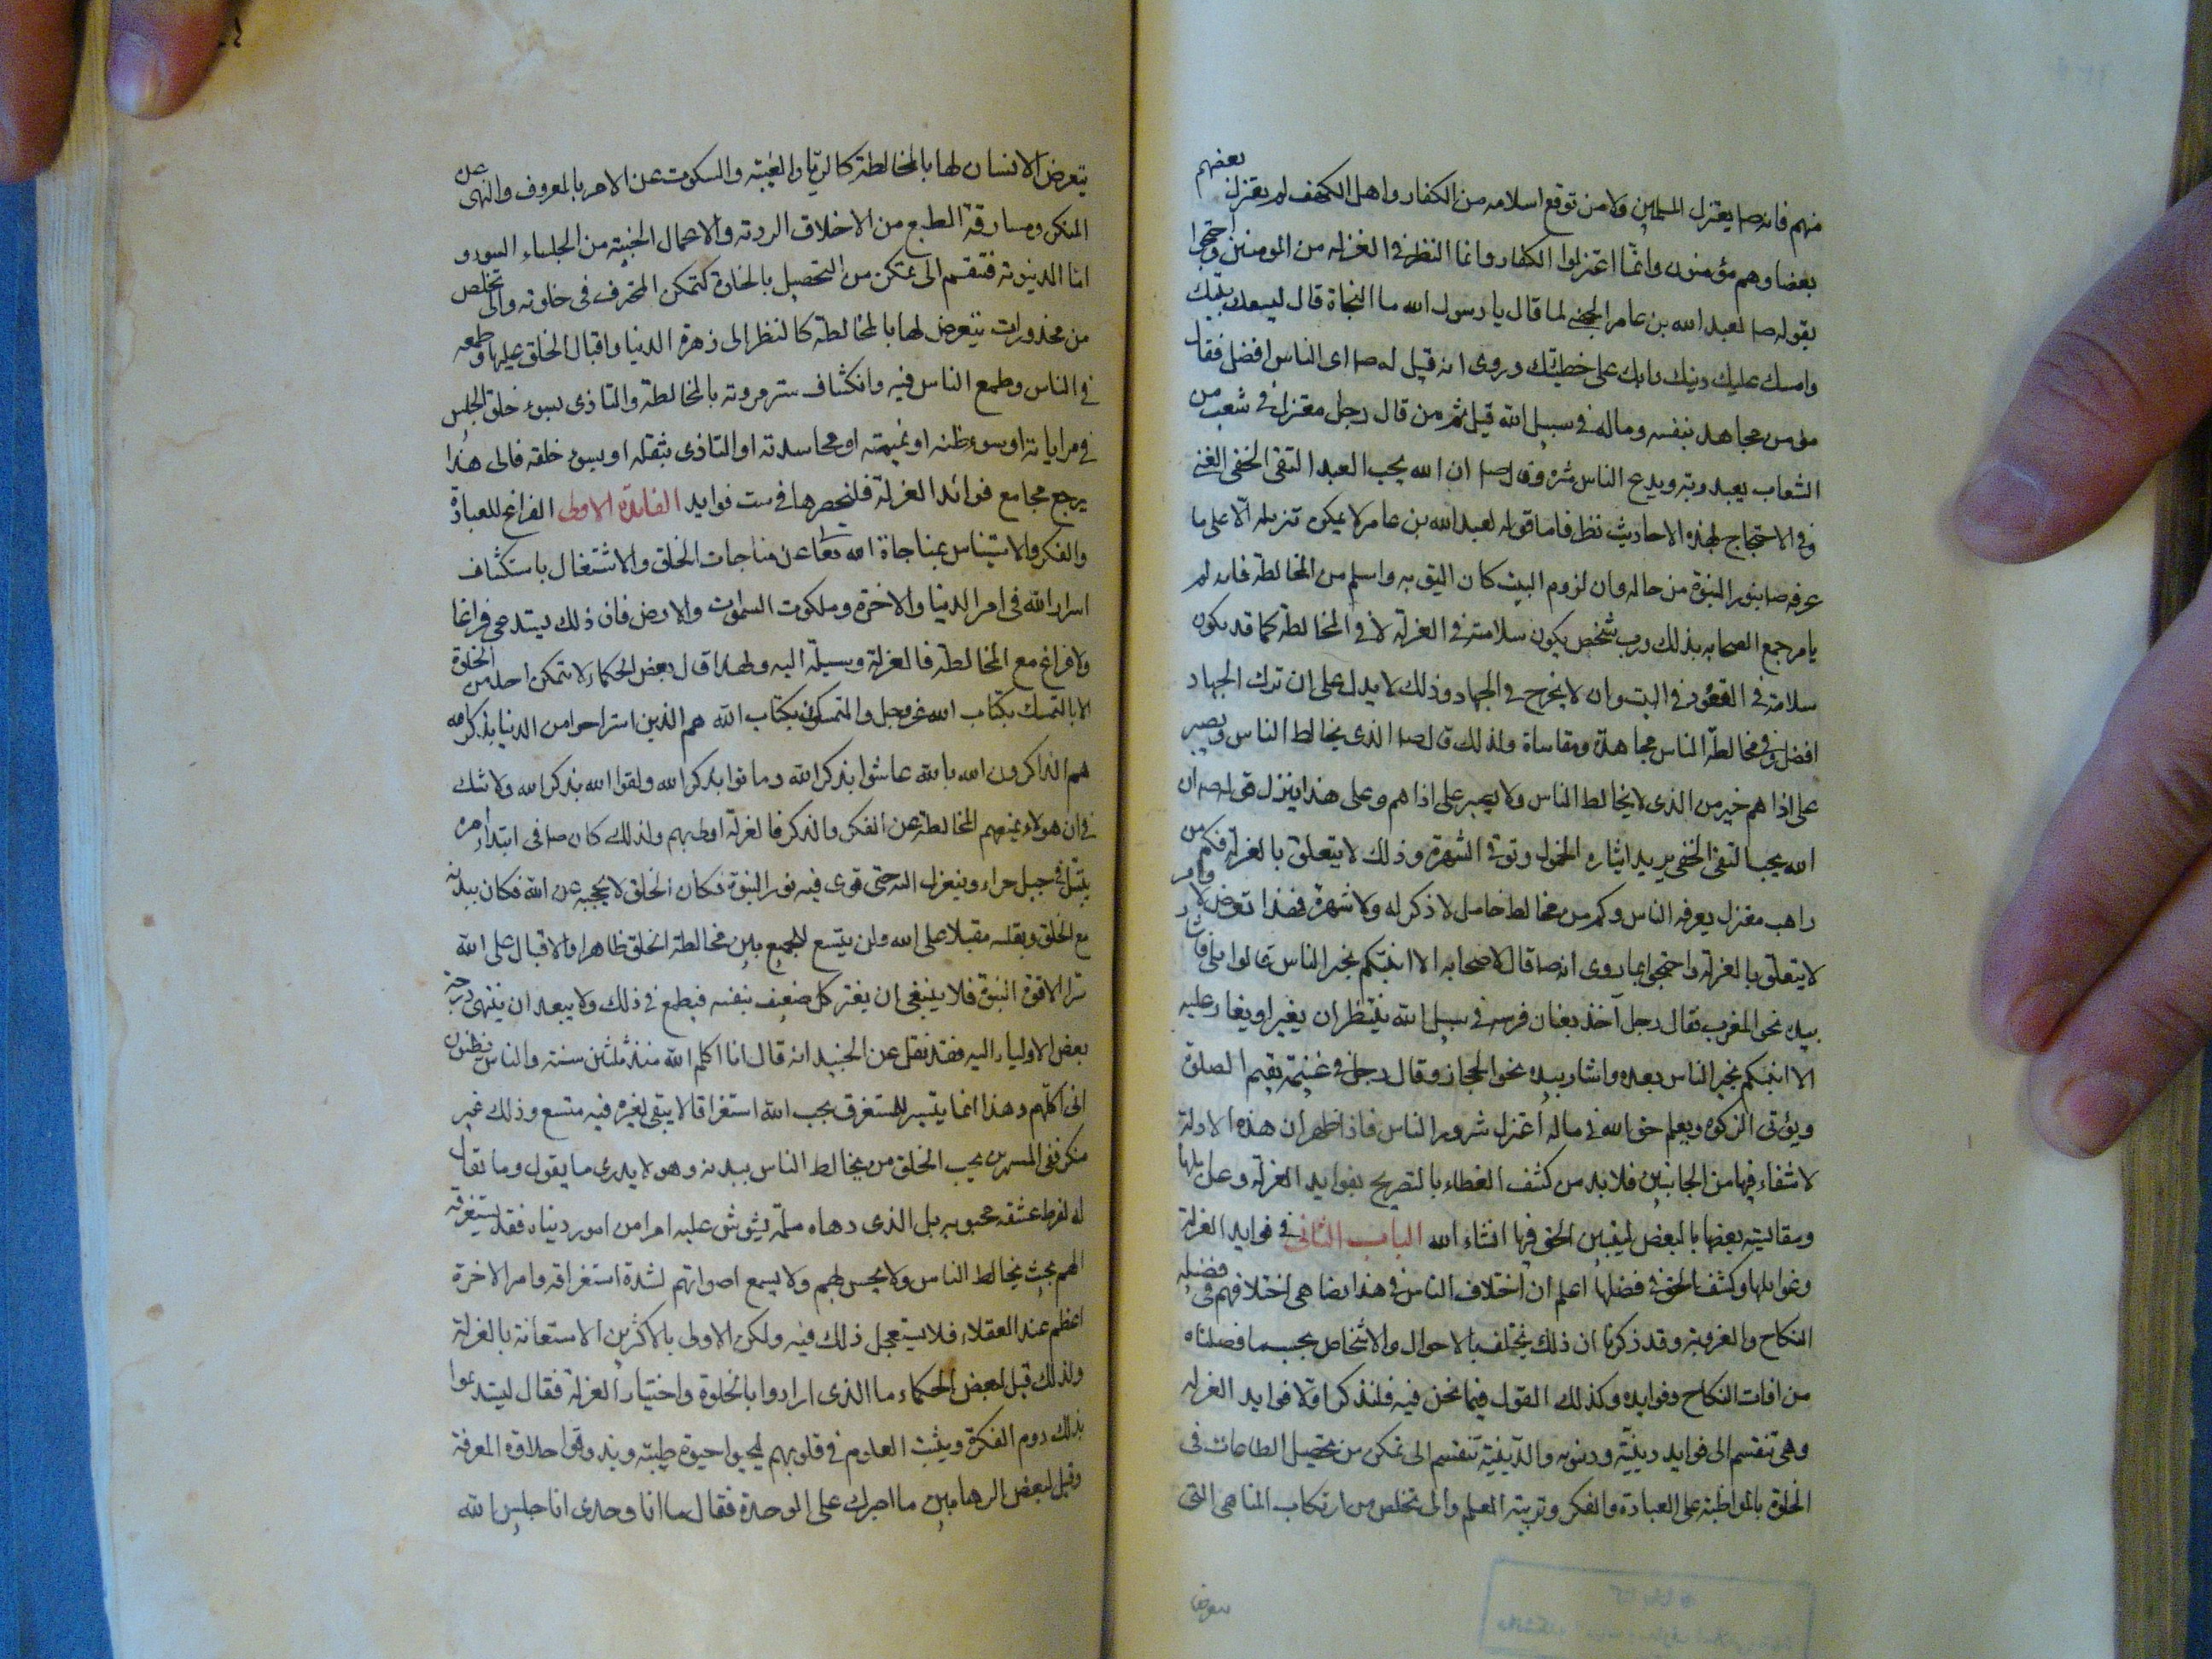 منهم فانه صلا يعتزل المسلمين ولا من توقع اسلامه من الكفار واهل الكهف لم يعتزل بعضهم
بعضا وهم مؤمنون وانّما اعتزلوا الكفار وانما النظر في العزله من المومنين واحتجوا
بقوله صلا لعبد الله بن عامر الجهني لما قال يا رسول الله ما النجاة قال ليسعك بيتك
وامسك عليك دينك وابك على خطيئتك وروى انه قيل له صلا اى الناس افضل فقال
مؤمن مجاهد بنفسه وماله في سبيل الله قيل ثم من قال رجل معتزل في شعب من
الشعاب يعبد ربه ويدع الناس شره وقال صلا ان الله يحب العبد التقى الخفى الغنى
وفي الاحتجاج بهذه الاحاديث نظر فاما قوله لعبد الله بن عامر لا يمكن تنزيله الّا على ما
عرفه صلا بنور النبوّة من حاله وان لزوم البيت كان اليق به واسلم من المخالطة فانه لم
يامر جمع الصحابه بذلك ورب شخص يكون سلامته في العزلة لا في المخالطة كما قد يكون
سلامته في القعود في البيت وان لا يخرج في الجهاد وذلك لا يدل على ان ترك الجهاد
افضل وفي مخالطة الناس مجاهدة ومقاساة ولذلك قال صلا الذى يخالط الناس ويصبر
على اذاهم خير من الذى لا يخالط الناس ولا يصبر على اذاهم وعلى هذا ينزل قوله صلا ان
الله يحب التقى الخفى يريد ايثاره الخمول وتوقى الشهرة وذلك لا يتعلق بالعزلة فكم من
راهب معتزل يعرفه الناس وكم من مخالط خامل لا ذكر له ولا شهرة فهذا تعرض لامر
لا يتعلق بالعزلة واحتجوا بما روى انه صلا قال لاصحابه الا انبئكم بخير الناس قالوا بلى فاشار
بيده نحو المغرب فقال رجل آخذ بعنان فرسه في سبيل الله ينتظر ان يغير او يغار عليه
الا انبئكم بخير الناس بعده واشار بيده نحو الحجاز وقال رجل في غنيمة يقيم الصلوة
ويؤتى الزكوة ويعلم حق الله في ماله اعتزل شرور الناس فاذا ظهر ان هذه الادلة
لا شفاء فيها من الجانبين فلا بد من كشف الغطاء بالتصريح بفوايد العزلة وغوائلها
ومقايسة بعضها بالبعض ليتبين الحق فيها انشاء الله الباب الثانى في فوايد العزلة
وغوايلها وكشف الحق في فضلها اعلم ان اختلاف الناس في هذا يضاهى اختلافهم في فضيلة
النكاح والعزوبة وقد ذكرنا ان ذلك يختلف بالاحوال والاشخاص بحسب ما فصلناه
من افات النكاح وفوايده وكذلك القول فيما نحن فيه فلنذكر اوّلا فوايد العزله
وهى تنقسم الى فوايد دينيّة ودنيويه والدّينيّة تنقسم الى تمكن من تحصيل الطاعات في
الخلوة بالمواظبة على العبادة والفكر وتربية العلم والى تخلص من ارتكاب المناهى التى
يتعرض
يتعرض الانسان لها بالمخالطة كالريّا والغيبة والسكوت عن الامر بالمعروف والنهى عن
المنكر ومسارقة الطبع من الاخلاق الردية والاعمال الخبيثة من الجلساء السوء و
امّا الدنيوية فتنقسم الى تمكن من التحصيل بالخلوة كتمكن المحترف في خلوته والى تخلص
من محذورات يتعرض لها بالمخالطة كالنظر الى زهرة الدنيا واقبال الخلق عليها وطمعه
في الناس وطمع الناس فيه وانكشاف ستر مروته بالمخالطة والتاذى بسوء خلق الجليس
في مراياته او سوء ظنه او نميمته او محاسدته او التاذى بثقله او بسوء خلقه فالى هذا
يرجع مجامع فوائد العزلة فلنحصرها في ست فوايد الفايدة الاولى الفراغ للعبادة
والفكر والاستيناس بمناجاة الله تعا عن مناجات الخلق والاشتغال باستكشاف
اسرار الله في امر الدنيا والاخرة وملكوت السموات والارض فان ذلك يستدعى فراغا
ولا فراغ مع المخالطة فالعزلة وسيلة اليه ولهذا قال بعض الحكماء لا يتمكن احد من الخلوة
الا بالتمسك بكتاب الله عز وجل والمتمسكون بكتاب الله هم الذين استراحوا من الدنيا بذكر الله
هم الذاكرون الله بالله عاشوا بذكر الله وماتوا بذكر الله ولقوا الله بذكر الله ولا شك
في ان هولاء يمنعهم المخالطة عن الفكر والذكر فالعزلة اولى بهم ولذلك كان صلا في ابتداء امره
يتبتل في جبل حراء وينعزل اليه حتى قوى فيه نور النبوة فكان الخلق لا يحجبه عن الله فكان ببدنه
مع الخلق وبقلبه مقبلا على الله ولن يتسع للجمع بين مخالطة الخلق ظاهرا والاقبال على الله
سرا الا قوة النبوة فلا ينبغى ان يغتر كل ضعيف بنفسه فيطمع في ذلك ولا يبعد ان ينتهى درجة
بعض الاولياء اليه فقد نقل عن الجنيد انه قال انا اكلم الله منذ ثلثين سنة والناس يظنون
انى اكلّمهم وهذا انما يتيسر للمستغرق بحب الله استغراقا لا يبقى لغيره فيه متسع وذلك غير
منكر ففى المشهرين بحب الخلق من يخالط الناس ببدنه وهو لا يدرى ما يقول وما يقال
له لفرط عشقه محبوبه بل الذى دهاه ملمة يشوش عليه امرا من امور دنياه فقد يستغرقه
الهم بحيث يخالط الناس ولا يحس بهم ولا يسمع اصواتهم لشدة استغراقه وامر الاخرة
اعظم عند العقلاء فلا يستعجل ذلك فيه ولكن الاولى بالاكثرين الاستعانة بالعزلة
ولذلك قيل لبعض الحكماء ما الذى ارادوا بالخلوة واختيار العزلة فقال ليستدعوا
بذلك دوم الفكرة ويثبت العلوم في قلوبهم ليحيوا حيوة طيبة ويذوقوا حلاوة المعرفة
وقيل لبعض الرهابين ما اصبرك على الوحدة فقال ما انا وحدى انا جليس الله